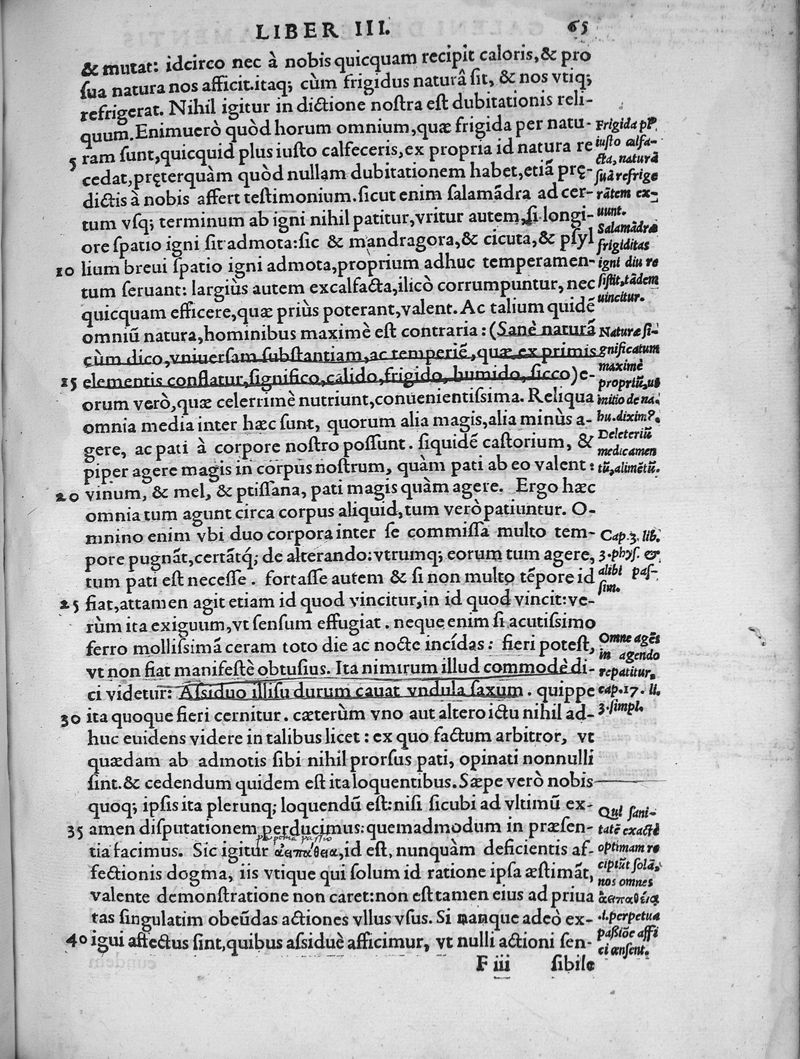 LIBER III. 65
& mutat: idcirco nec à nobis quicquam recipit caloris, & pro
sua natura nos afficit. itaq; cùm frigidus naturâ sit, & nos vtiq;
refrigerat. Nihil igitur in dictione nostra est dubitationis reli-
quum. Enimuerò quòd horum omnium, quæ frigida per natu-
5 ram sunt, quicquid plus iusto calfeceris, ex propria id natura re
cedat, pręterquàm quòd nullam dubitationem habet, etiā prę-
dictis à nobis affert testimonium. sicut enim salamādra ad cer-
tum vsq; terminum ab igni nihil patitur, vritur autem, si longi-
ore spatio igni sit admota: sic & mandragora, & cicuta, & psyl
10 lium breui spatio igni admota, proprium adhuc temperamen-
tum seruant: largiùs autem excalfacta, ilicò corrumpuntur, nec
quicquam efficere, quæ priùs poterant, valent. Ac talium quidē
omniū natura, hominibus maximè est contraria: (Sanè naturā
cùm dico, vniuersam substantiam, ac temperiē, quæ ex primis
15 elementis conflatur, significo, calido, frigido, humido, sicco) e-
orum verò, quæ celerrimè nutriunt, conuenientissima. Reliqua
omnia media inter hæc sunt, quorum alia magis, alia minùs a-
gere, ac pati à corpore nostro possunt. siquidē castorium, &
piper agere magis in corpus nostrum, quàm pati ab eo valent:
20 vinum, & mel, & ptissana, pati magis quàm agere. Ergo hæc
omnia tum agunt circa corpus aliquid, tum verò patiuntur. O-
mnino enim vbi duo corpora inter se commissa multo tem-
pore pugnāt, certātq; de alterando: vtrumq; eorum tum agere,
tum pati est necesse. fortasse autem & si non multo tēpore id
25 fiat, attamen agit etiam id quod vincitur, in id quod vincit: ve-
rùm ita exiguum, vt sensum effugiat. neque enim si acutissimo
ferro mollissimā ceram toto die ac nocte incídas: fieri potest,
vt non fiat manifestè obtusius. Ita nimirum illud commodè di-
ci videtur: Assiduo illisu durum cauat vndula saxum. quippe
30 ita quoque fieri cernitur. cæterùm vno aut altero ictu nihil ad-
huc euidens videre in talibus licet: ex quo factum arbitror, vt
quædam ab admotis sibi nihil prorsus pati, opinati nonnulli
sint. & cedendum quidem est ita loquentibus. Sæpe verò nobis
quoq; ipsis ita plerunq; loquendū est: nisi sicubi ad vltimū ex-
35 amen disputationem perducimus: quemadmodum in præsen-
tia facimus. Sic igitur ἀειπάθεια, id est, nunquàm deficientis af-
fectionis dogma, iis vtique qui solum id ratione ipsa æstimāt,
valente demonstratione non caret: non est tamen eius ad priua
tas singulatim obeūdas actiones vllus vsus. Si nanque adeò ex-
40 igui affectus sint, quibus assiduè afficimur, vt nulli actioni sen-
F iii sibile
Frigida pl9.
iusto calfa-
cta, naturā
suā refrige
rātem ex-
uunt.
Salamādræ
frigiditas
igni diu re
sistit, tādem
uincitur.
Naturæ si-
gnificatum
maximè
propriū, ut
initio de na.
hu. diximꝰ.
Deleteriū
medicamen
tū, alimētū.
Cap. 3. lib.
3. phys. &
alibi pas-
sim.
Omne agēs
in agendo
repatitur,
cap. 17. li.
3. simpl.
Qui sani-
tatē exactè
optimam re
cipiūt solā,
nos omnes
ἀειπαθείᾳ
.i. perpetua
passiōe affi
ci cēsent.